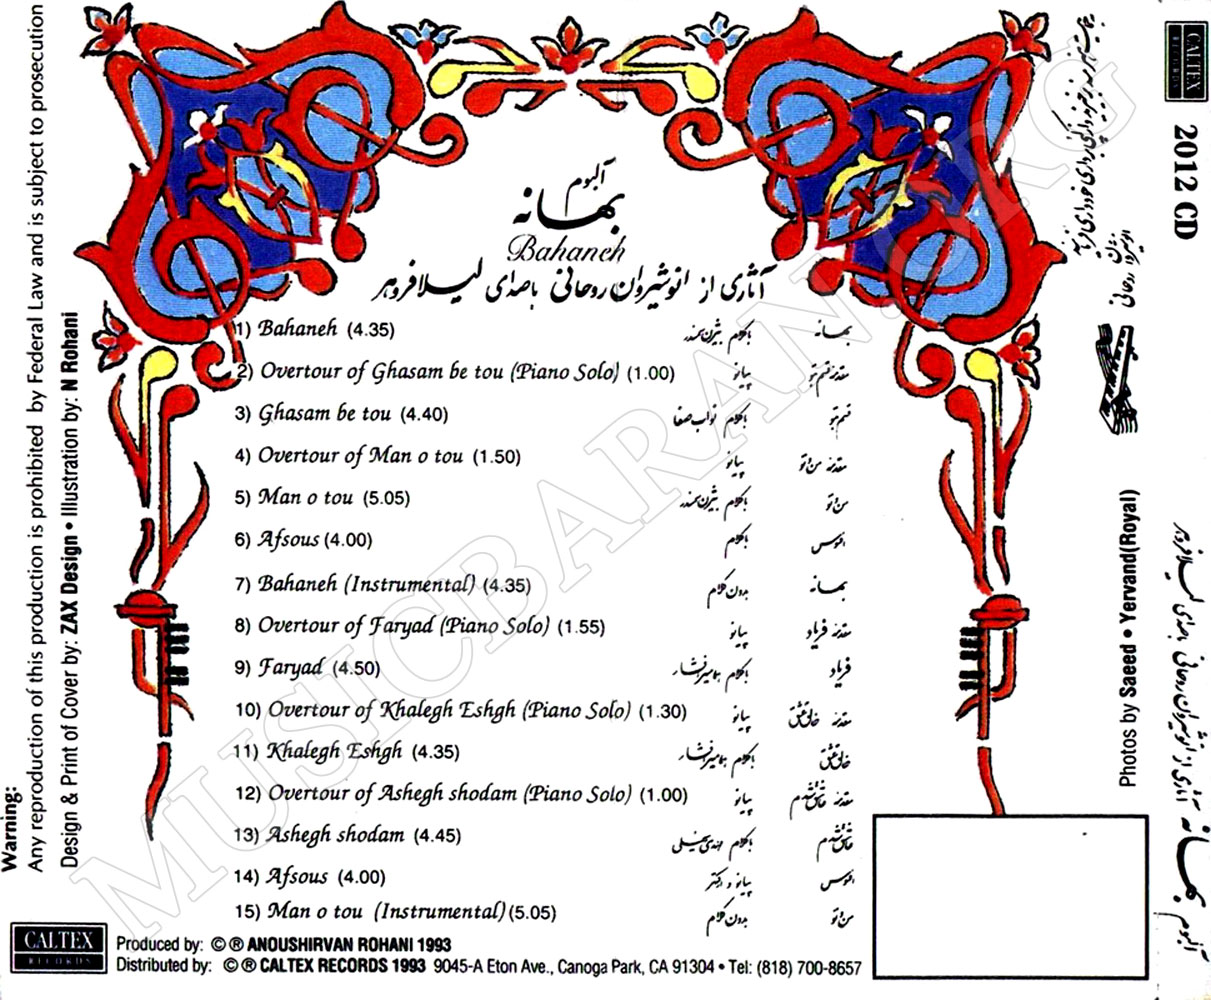 آلبوم
بهانه
Bahaneh
آثاری از انوشیروان روحانی با صدای لیلا فروهر
1) Bahaneh (4.35) با کلام بیژن سمندر بهانه
2) Overtour of Ghasam be tou (Piano Solo) (1.00) پیانو مقدمه قسم تو
3) Ghasam be tou (4.40) با کلام نواب صفا قسم تو
4) Overtour of Man o tou (1.50) پیانو مقدمه من و تو
5) Man o tou (5.05) با کلام بیژن سمندر من و تو
6) Afsous (4.00) با کلام افسوس
7) Bahaneh (Instrumental) (4.35) بدون کلام بهانه
8) Overtour of Faryad (Piano Solo) (1.55) پیانو مقدمه فریاد
9) Faryad (4.50) با کلام هما میرافشار فریاد
10) Overtour of Khalegh Eshgh (Piano Solo) (1.30) پیانو مقدمه خالق عشق
11) Khalegh Eshgh (4.35) با کلام هما میرافشار خالق عشق
12) Overtour of Ashegh shodam (Piano Solo) (1.00) پیانو مقدمه عاشق شدم
13) Ashegh shodam (4.45) با کلام عاشق شدم
14) Afsous (4.00) پیانو و ارکستر افسوس
15) Man o tou (Instrumental) (5.05) بدون کلام من و تو
CALTEX
RECORDS
Produced by: © ® ANOUSHIRVAN ROHANI 1993
Distributed by: © ® CALTEX RECORDS 1993 9045-A Eton Ave., Canoga Park, CA 91304 • Tel: (818) 700-8657
Warning:
Any reproduction of this production is prohibited by Federal Law and is subject to prosecution
Design & Print of Cover by: ZAX Design • Illustration by: N Rohani
انوشیروان روحانی
Photos by Saeed • Yervand(Royal)
CALTEX
RECORDS
2012 CD
آلبوم بهانه آثاری از انوشیروان روحانی با صدای لیلا فروهر
MUSICBARAN.ORG